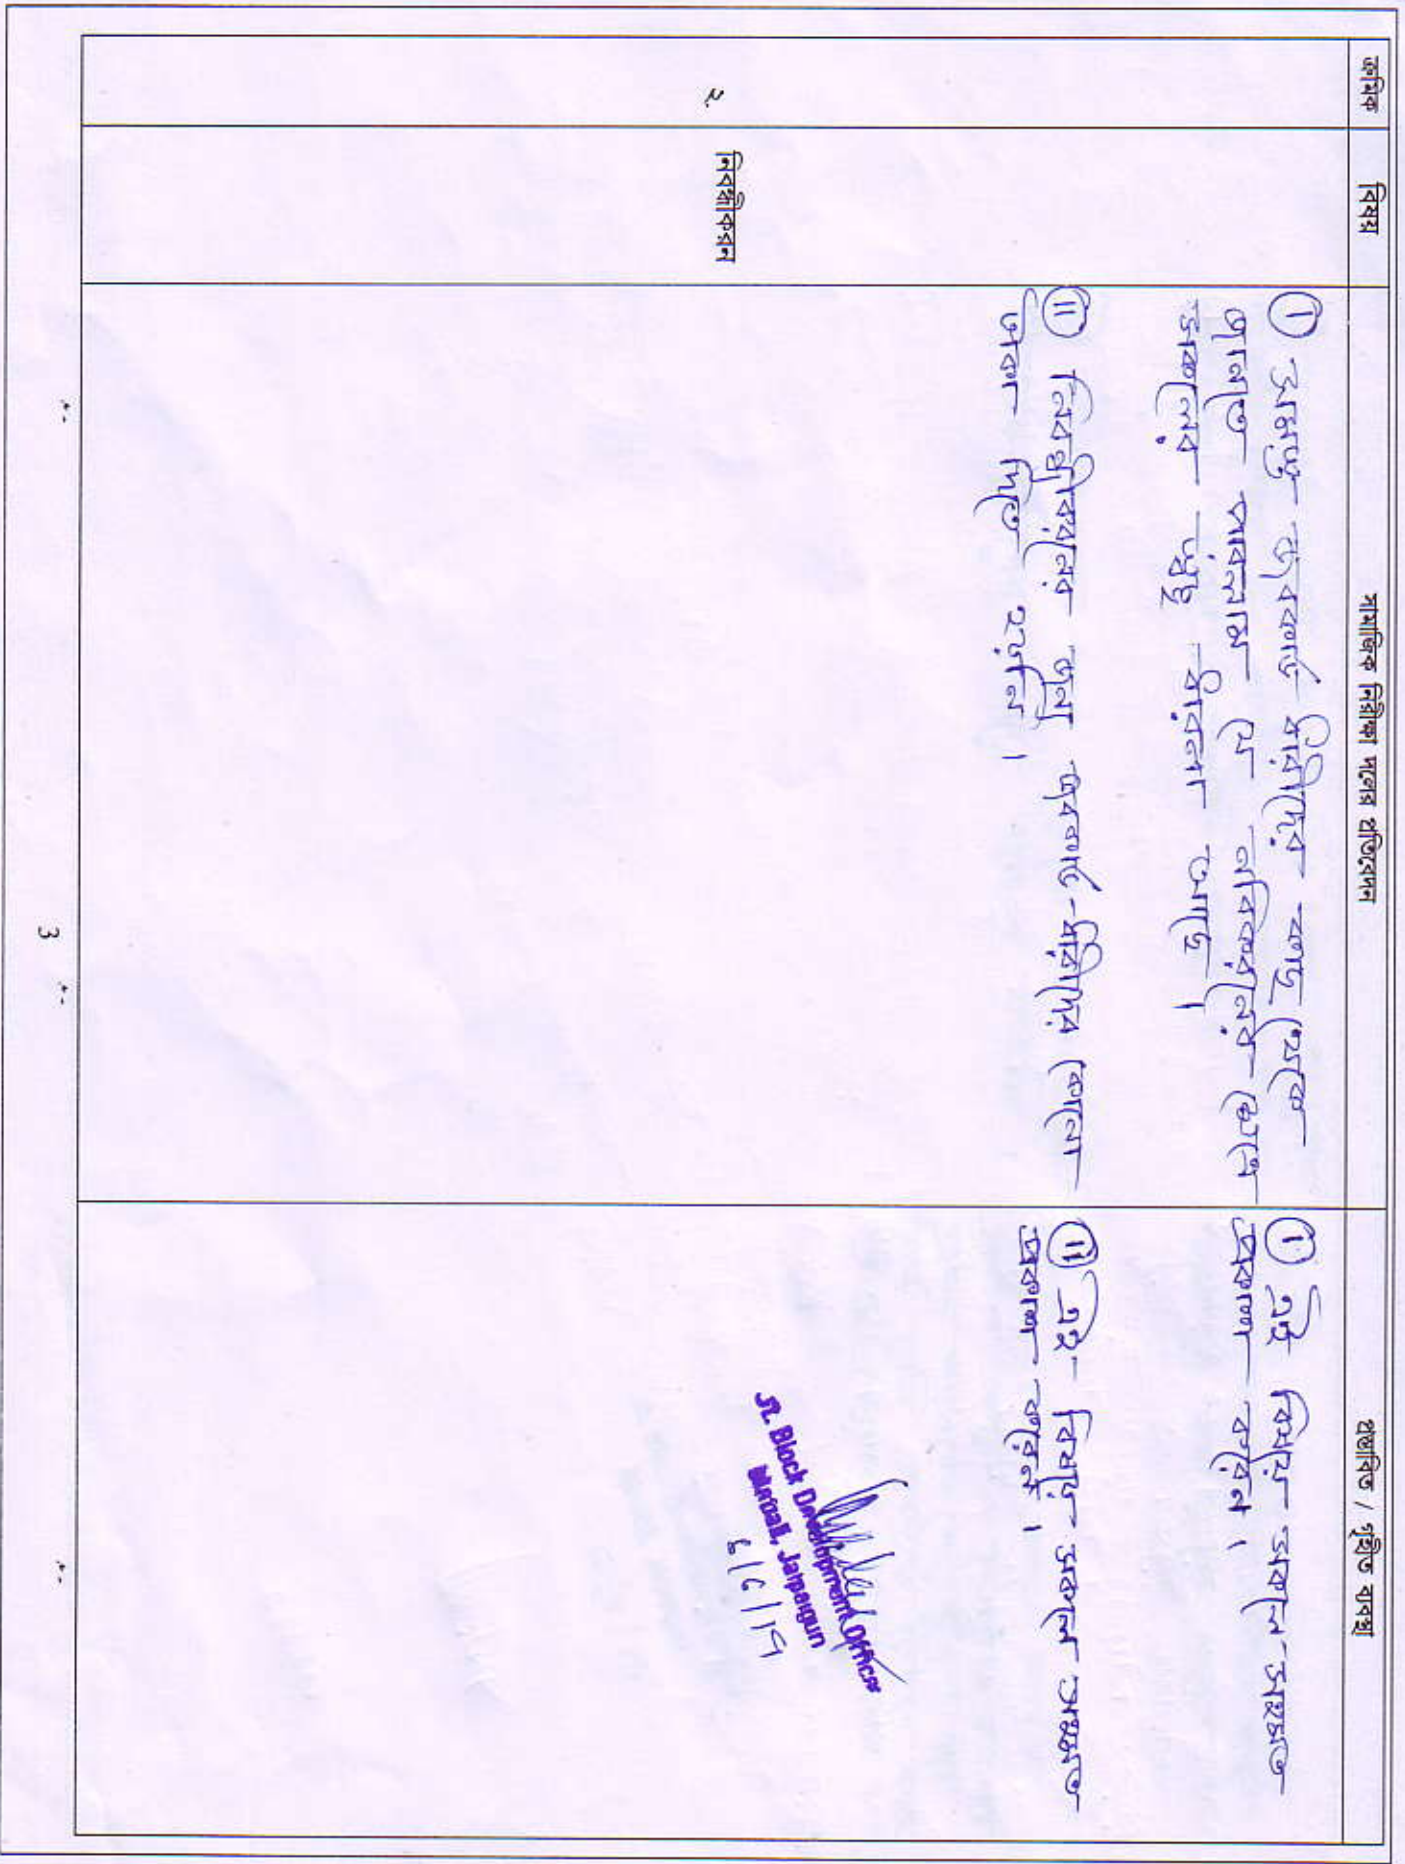 ক্রমিক বিষয় সামাজিক নিরীক্ষা দলের প্রতিবেদন প্রস্তাবিত / গৃহীত ব্যবস্থা
২. নিবন্ধীকরন
① সমস্ত জবকার্ড ধারীদের কাছ থেকে
জানতে পারলাম যে নবিকরনের ক্ষেত্রে
সকলের স্বচ্ছ ধারনা আছে।
② নিবন্ধীকরনের জন্য জবকার্ড ধারীদের কোনো
টাকা দিতে হয়নি।
① এই বিষয়ে সকলে সহমত
প্রকাশ করেন।
② এই বিষয়ে সকলে সহমত
প্রকাশ করেন।
Jt. Block Development Officer
Matiali, Jalpaiguri
6/6/19
3